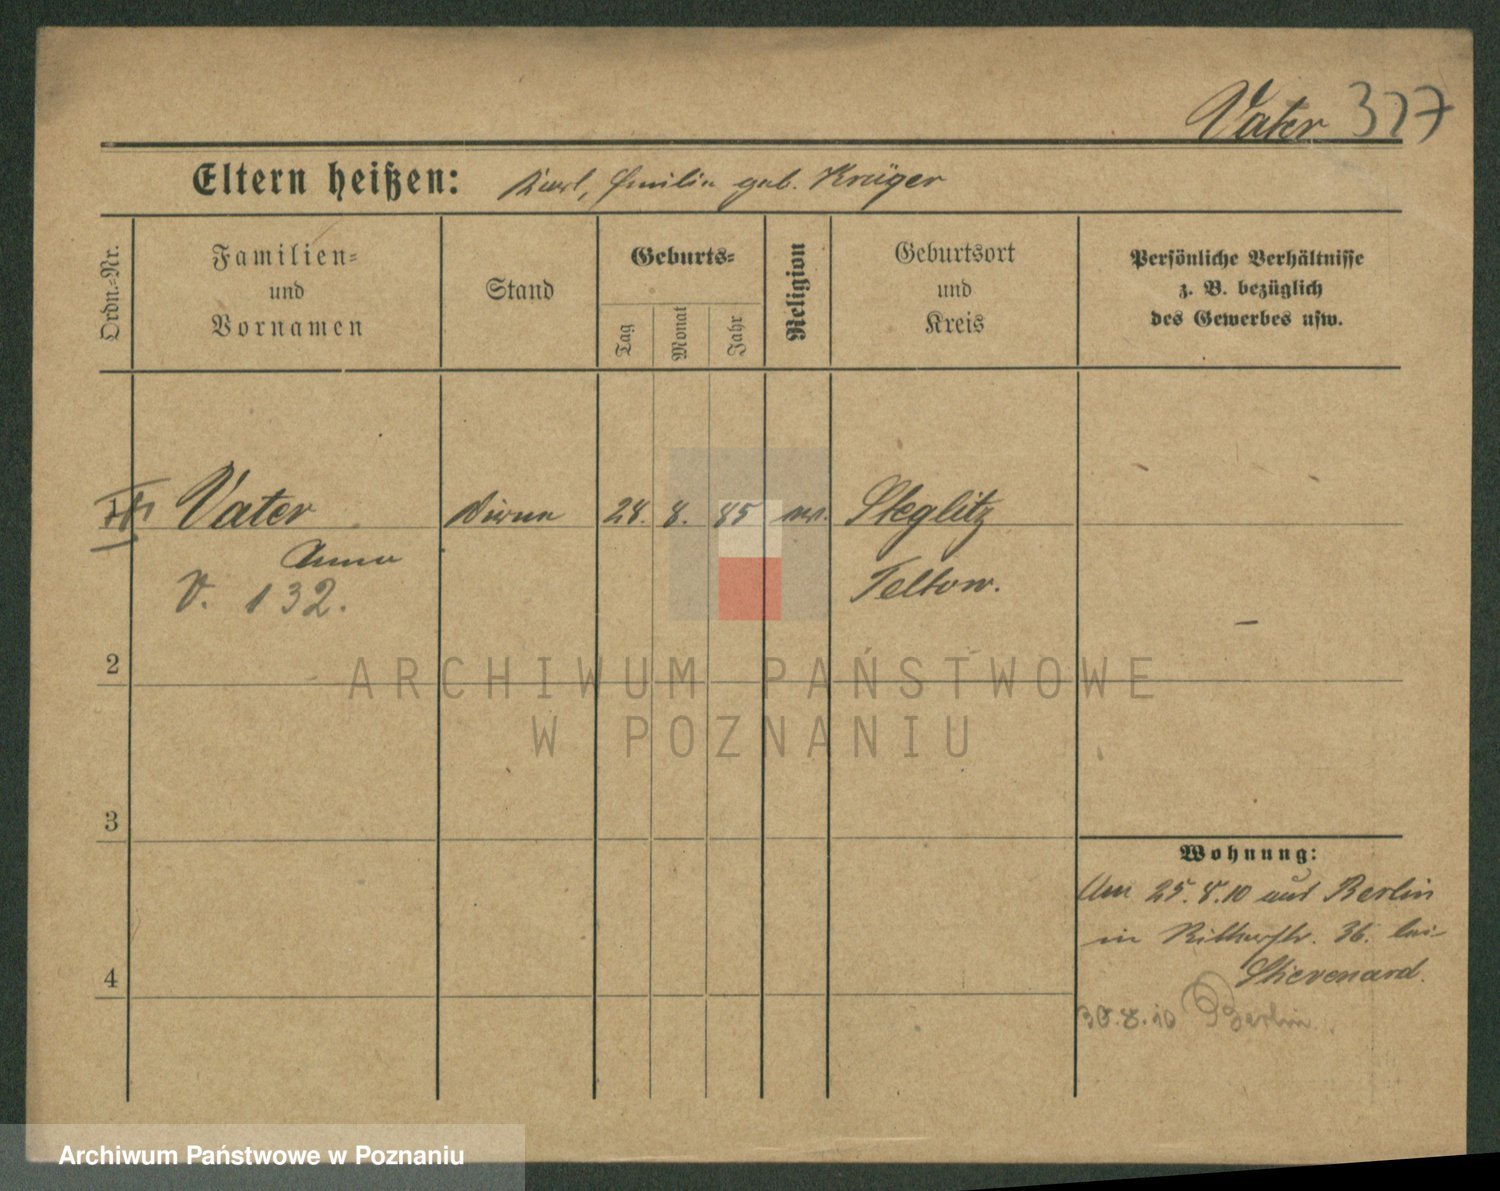 Vater 327
Eltern heißen: Karl, Emilie geb. Krüger
Ordn.-Nr.
Familien-
und
Vornamen
Stand
Geburts-
Tag
Monat
Jahr
Religion
Geburtsort
und
Kreis
Persönliche Verhältnisse
z. B. bezüglich
des Gewerbes usw.
Vater Dirne 28. 8. 85 ev. Steglitz
Anna
V. 132.
Teltow.
—
2
3
4
ARCHIWUM PAŃSTWOWE
W POZNANIU
Wohnung:
Am 25.8.10 aus Berlin
in Ritterstr. 36. bei
Stievenard.
30.8.10 Berlin.
Archiwum Państwowe w Poznaniu